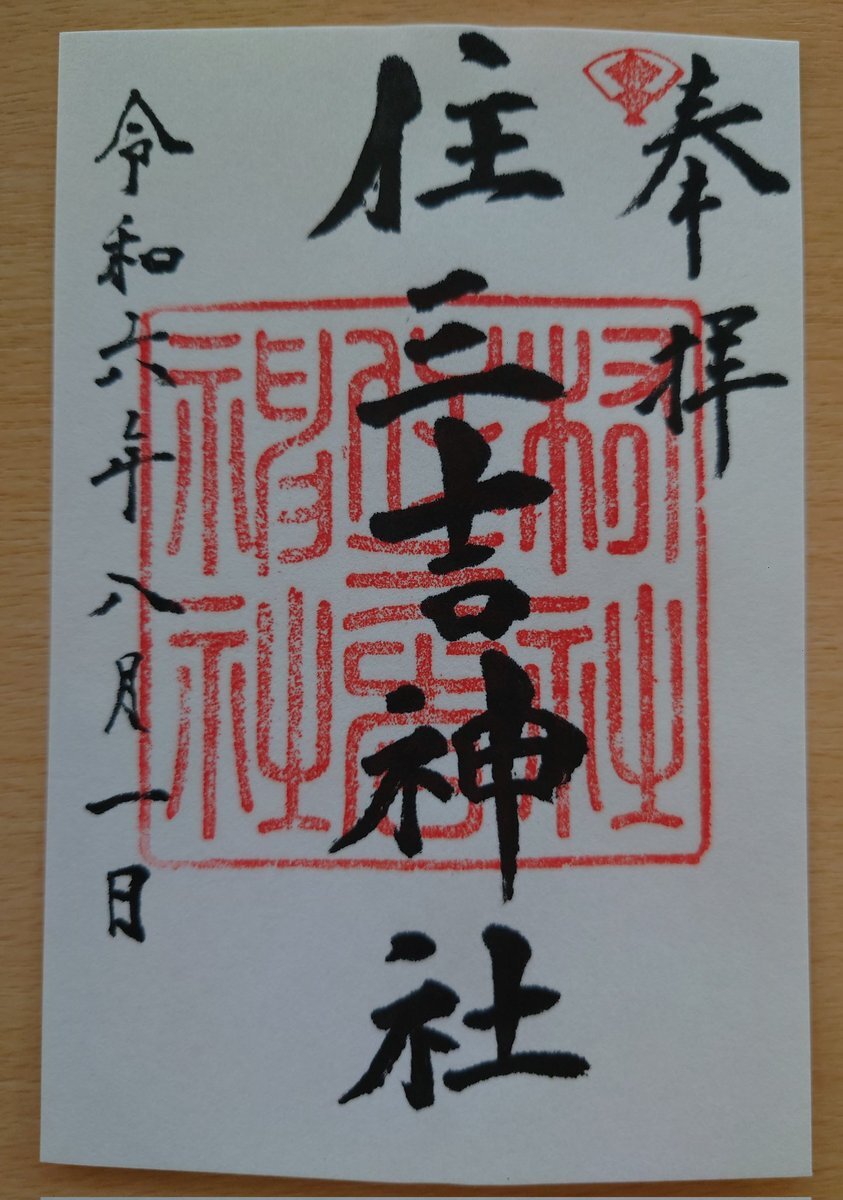 奉拝
住三吉神社
令和六年八月一日
村社
住三吉
神社